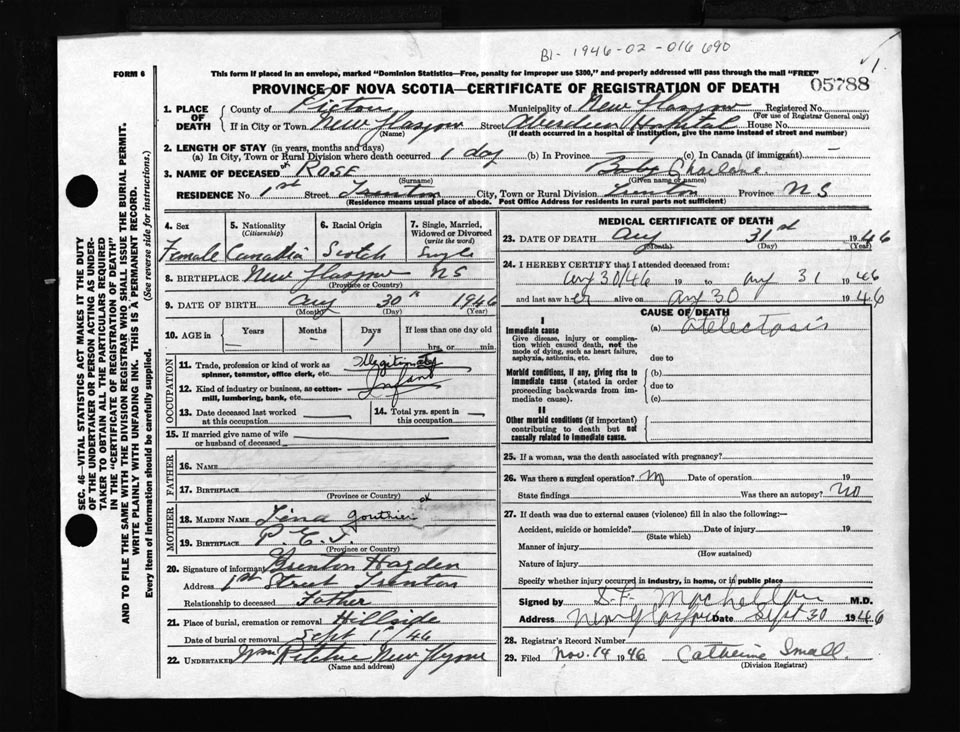 BI- 1946-02-016690
1.
FORM 6
This form if placed in an envelope, marked "Dominion Statistics—Free, penalty for improper use $300," and properly addressed will pass through the mail "FREE"
PROVINCE OF NOVA SCOTIA—CERTIFICATE OF REGISTRATION OF DEATH
05788
SEC. 46—VITAL STATISTICS ACT MAKES IT THE DUTY
OF THE UNDERTAKER OR PERSON ACTING AS UNDER-
TAKER TO OBTAIN ALL THE PARTICULARS REQUIRED
IN THE "CERTIFICATE OF REGISTRATION OF DEATH"
AND TO FILE THE SAME WITH THE DIVISION REGISTRAR WHO SHALL ISSUE THE BURIAL PERMIT.
WRITE PLAINLY WITH UNFADING INK. THIS IS A PERMANENT RECORD.
Every item of information should be carefully supplied. (See reverse side for instructions.)
1. PLACE OF DEATH
County of Pictou Municipality of New Glasgow Registered No.
(For use of Registrar General only)
If in City or Town New Glasgow Street Aberdeen Hospital House No.
(Name) (If death occurred in a hospital or institution, give the name instead of street and number)
2. LENGTH OF STAY (in years, months and days)
(a) In City, Town or Rural Division where death occurred 1 day (b) In Province — (c) In Canada (if immigrant) —
3. NAME OF DECEASED ROSE Baby
(Surname) (Given name or names)
RESIDENCE No. 1st Street Trenton City, Town or Rural Division Trenton Province N S
(Residence means usual place of abode. Post Office Address for residents in rural parts not sufficient)
4. Sex
Female
5. Nationality
(Citizenship)
6. Racial Origin
Scotch
7. Single, Married,
Widowed or Divorced
(write the word)
Single
8. BIRTHPLACE New Glasgow NS
(Province or Country)
9. DATE OF BIRTH Aug 30th 1946
(Month) (Day) (Year)
10. AGE in Years Months Days If less than one day old
hrs. or min.
OCCUPATION
11. Trade, profession or kind of work as
spinner, teamster, office clerk, etc. Illegitimate
12. Kind of industry or business, as cotton-
mill, lumbering, bank, etc.
13. Date deceased last worked
at this occupation
14. Total yrs. spent in
this occupation
15. If married give name of wife
or husband of deceased
FATHER
16. Name
17. Birthplace
(Province or Country)
MOTHER
18. MAIDEN NAME Lena Gouthier
19. Birthplace P. E. I.
(Province or Country)
20. Signature of informant Brenton Hagden
Address 1st Street Trenton
Relationship to deceased Father
21. Place of burial, cremation or removal Hillside
Date of burial or removal Sept 1st/46
22. UNDERTAKER Wm Ritchie New
(Name and address)
MEDICAL CERTIFICATE OF DEATH
23. DATE OF DEATH Aug 31st 1946
(Month) (Day) (Year)
24. I HEREBY CERTIFY that I attended deceased from:
Aug 30/46 19 to Aug 31 1946
and last saw her alive on Aug 30 1946
CAUSE OF DEATH
I
Immediate cause
Give disease, injury or complica-
tion which caused death, not the
mode of dying, such as heart failure,
asphyxia, asthenia, etc.
(a) Atelectasis
due to
Morbid conditions, if any, giving rise to
immediate cause (stated in order
proceeding backwards from im-
mediate cause).
(b)
due to
(c)
II
Other morbid conditions (if important)
contributing to death but not
causally related to immediate cause.
25. If a woman, was the death associated with pregnancy?
26. Was there a surgical operation? Date of operation 19
State findings Was there an autopsy? NO
27. If death was due to external causes (violence) fill in also the following:—
Accident, suicide or homicide? Date of injury 19
(State which)
Manner of injury
(How sustained)
Nature of injury
Specify whether injury occurred in industry, in home, or in public place
Signed by M.D.
Address New Glasgow Date Sept 30 1946
28. Registrar's Record Number
29. Filed Nov. 14 1946 Catherine Small.
(Division Registrar)